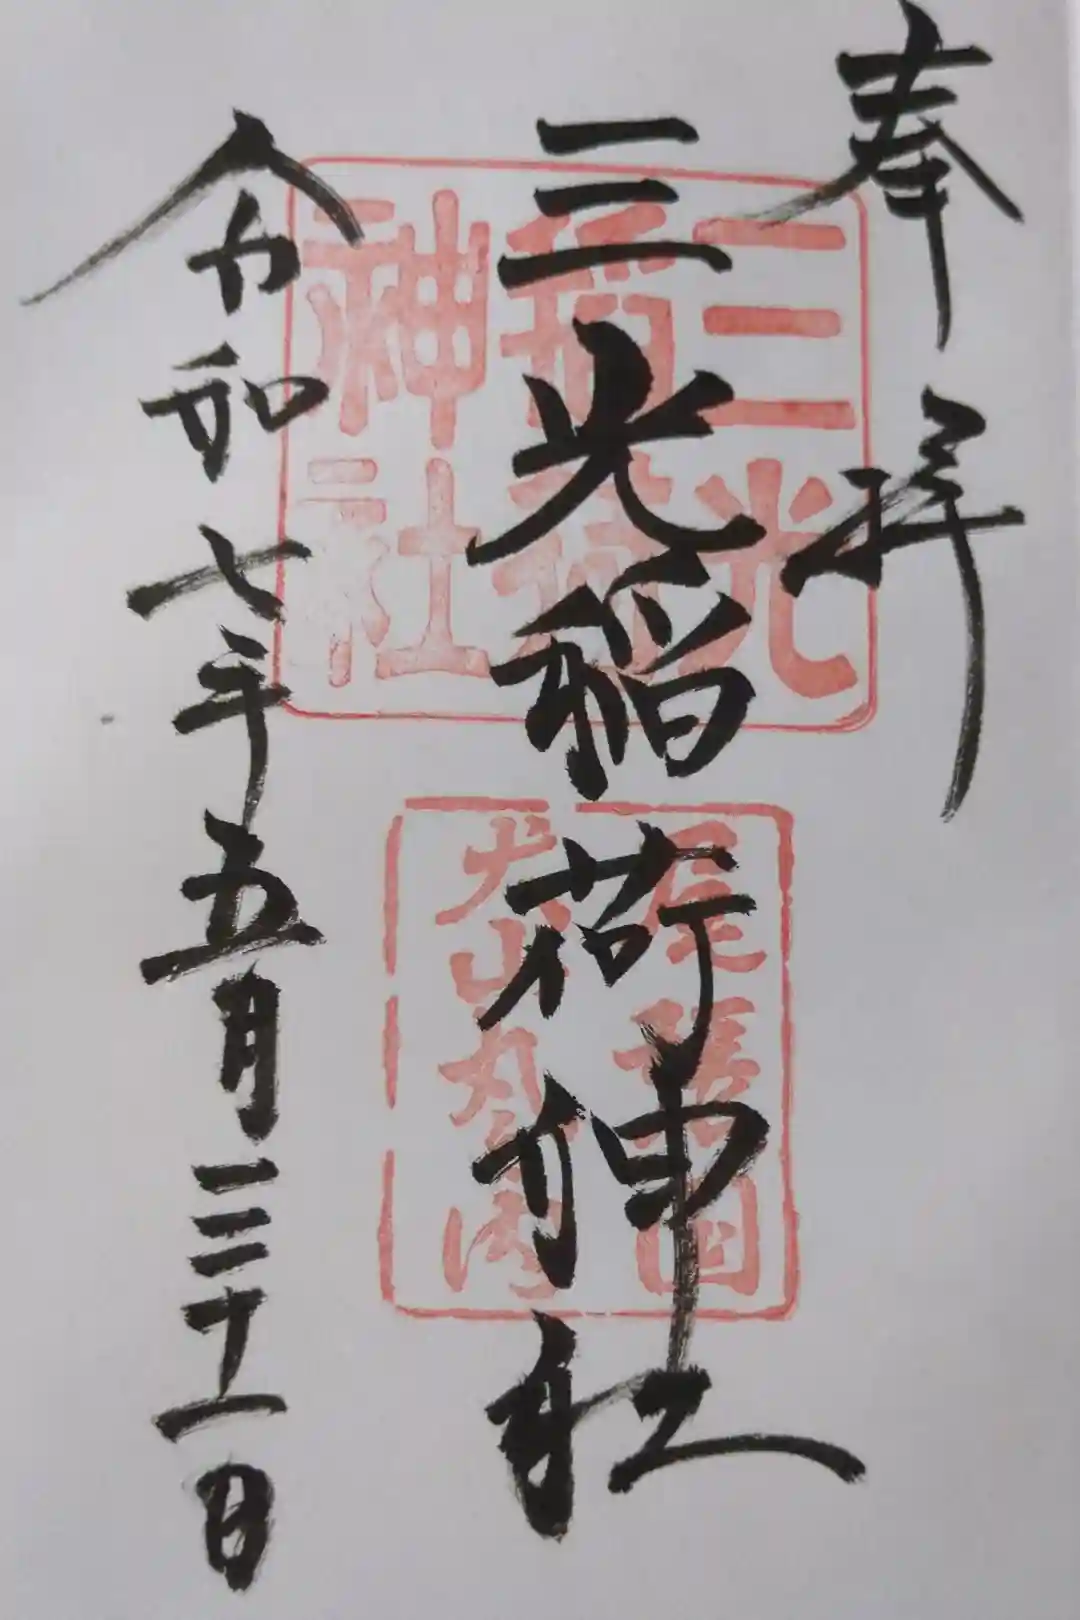 奉拝
三光稲荷神社
令和七年五月三十一日
三光
稲荷
神社
尾張国
犬山丸の内